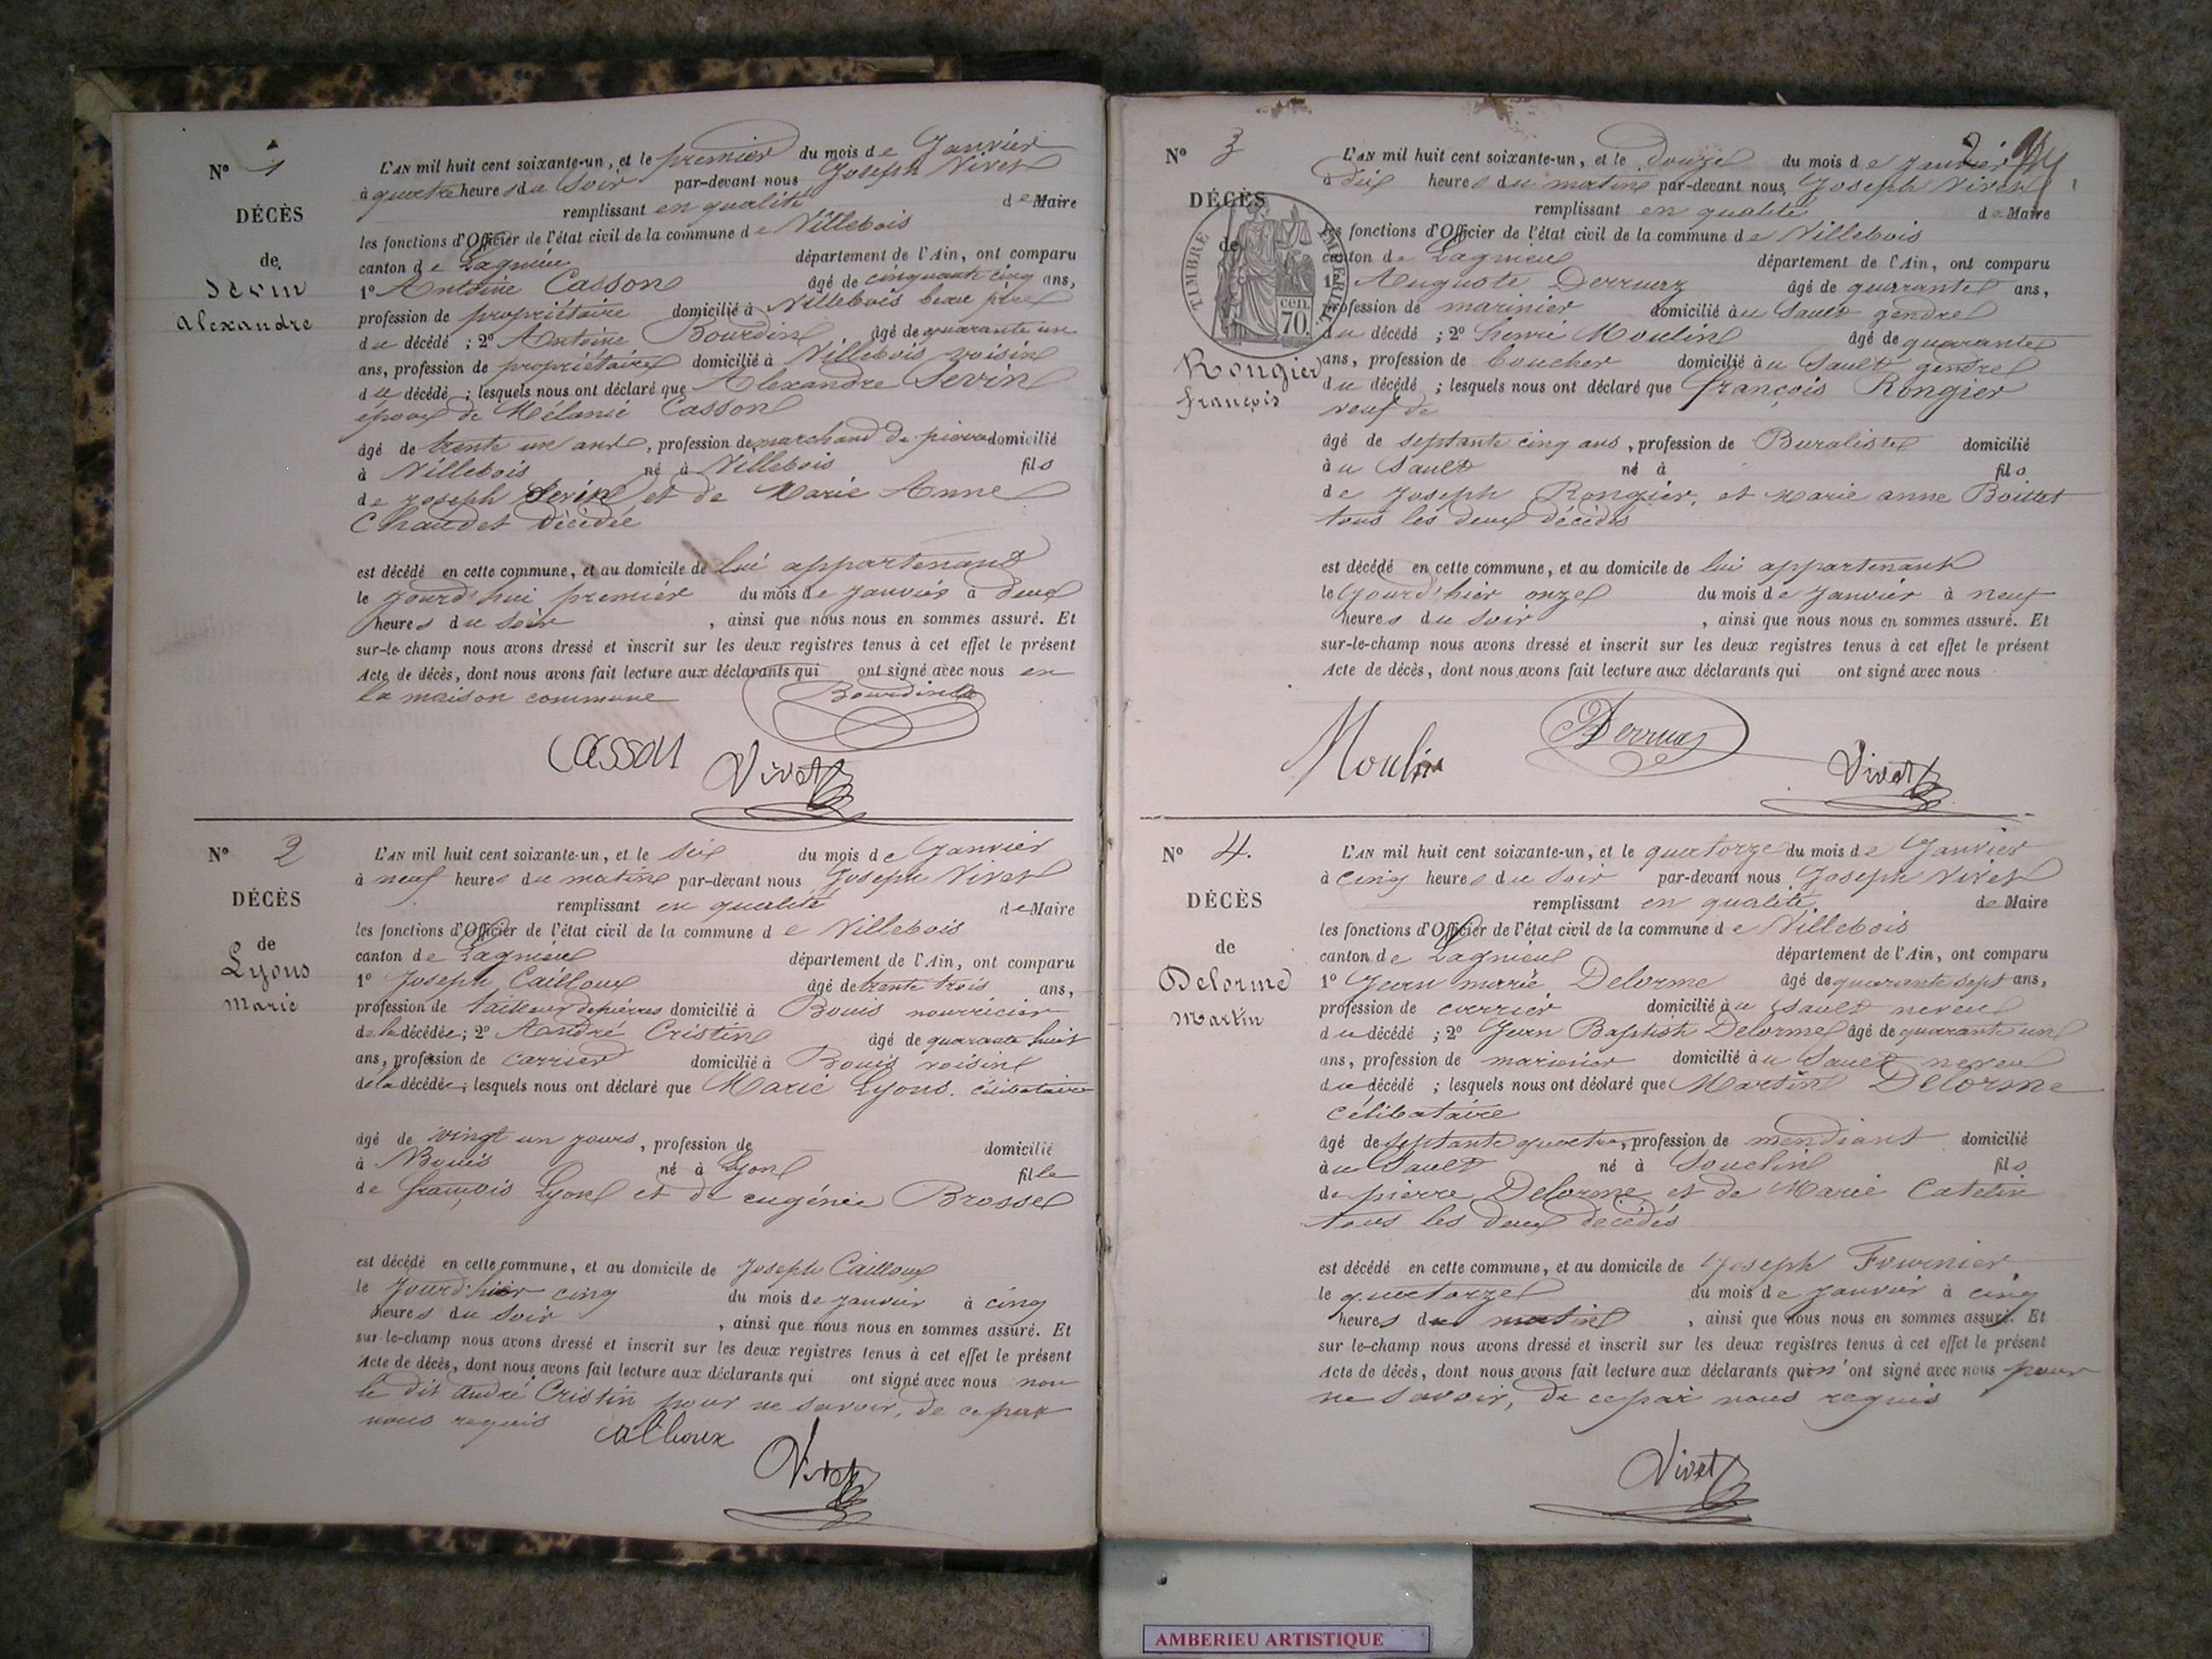 N° 1
L'AN mil huit cent soixante-un, et le premier du mois de Janvier
à quatre heures du soir par-devant nous Joseph Vivet
remplissant en qualité de Maire
DÉCÈS
les fonctions d'Officier de l'état civil de la commune de Villebois
de
canton de Lagnieu département de l'Ain, ont comparu
Sevin
1° Antoine Casson âgé de cinquante cinq ans,
Alexandre
profession de propriétaire domicilié à Villebois beau père
du décédé ; 2° Antoine Bourdin âgé de quarante un
ans, profession de propriétaire domicilié à Villebois voisin
du décédé ; lesquels nous ont déclaré que Alexandre Sevin
époux de Mélanie Casson
âgé de trente un ans, profession de marchand de pierre domicilié
à Villebois né à Villebois fils
de Joseph Sevin et de Marie Anne
Chaudet décédée
est décédé en cette commune, et au domicile de lui appartenant
le jourd'hui premier du mois de janvier à deux
heures du soir , ainsi que nous nous en sommes assuré. Et
sur-le-champ nous avons dressé et inscrit sur les deux registres tenus à cet effet le présent
Acte de décès, dont nous avons fait lecture aux déclarants qui ont signé avec nous en
la maison commune
Bourdin
Casson
Vivet
N° 2
L'AN mil huit cent soixante-un, et le six du mois de Janvier
à neuf heures du matin par-devant nous Joseph Vivet
DÉCÈS
remplissant en qualité de Maire
les fonctions d'Officier de l'état civil de la commune de Villebois
de
canton de Lagnieu département de l'Ain, ont comparu
Lyons
1° Joseph Cailloux âgé de trente trois ans,
Marie
profession de tailleur de pierres domicilié à Bouis nourricier
de la décédée ; 2° André Cristin âgé de quarante huit
ans, profession de carrier domicilié à Bouis voisin
de la décédée ; lesquels nous ont déclaré que Marie Lyons. célibataire
âgé de vingt un jours, profession de domicilié
à Bouis né à Lyon fille
de françois Lyon et de eugénie Brosse
est décédé en cette commune, et au domicile de Joseph Cailloux
le jourd'hier cinq du mois de janvier à cinq
heures du soir , ainsi que nous nous en sommes assuré. Et
sur-le-champ nous avons dressé et inscrit sur les deux registres tenus à cet effet le présent
Acte de décès, dont nous avons fait lecture aux déclarants qui ont signé avec nous non
le dit andré Cristin pour ne savoir, de ce par
nous requis
Cailloux
Vivet
2
N° 3
L'AN mil huit cent soixante-un, et le douze du mois de janvier
à dix heures du matin par-devant nous Joseph Vivet
DÉCÈS
remplissant en qualité de Maire
de
les fonctions d'Officier de l'état civil de la commune de Villebois
TIMBRE IMPÉRIAL
cen.
70.
canton de Lagnieu département de l'Ain, ont comparu
1° Auguste Derruaz âgé de quarante ans,
profession de marinier domicilié au Sault gendre
du décédé ; 2° henri Moulin âgé de quarante
Rongier
ans, profession de boucher domicilié au Sault gendre
françois
du décédé ; lesquels nous ont déclaré que françois Rongier
veuf de
âgé de septante cinq ans, profession de Buraliste domicilié
au Sault né à fils
de Joseph Rongier, et Marie anne Boittet
tous les deux décédés
est décédé en cette commune, et au domicile de lui appartenant
le jourd'hier onze du mois de janvier à neuf
heures du soir , ainsi que nous nous en sommes assuré. Et
sur-le-champ nous avons dressé et inscrit sur les deux registres tenus à cet effet le présent
Acte de décès, dont nous avons fait lecture aux déclarants qui ont signé avec nous
Moulin
Derruaz
Vivet
N° 4.
L'AN mil huit cent soixante-un, et le quatorze du mois de Janvier
à cinq heures du soir par-devant nous Joseph Vivet
DÉCÈS
remplissant en qualité de Maire
les fonctions d'Officier de l'état civil de la commune de Villebois
de
canton de Lagnieu département de l'Ain, ont comparu
Delorme
1° Jean marie Delorme âgé de quarante sept ans,
Martin
profession de carrier domicilié au Sault neveu
du décédé ; 2° Jean Baptiste Delorme âgé de quarante un
ans, profession de marinier domicilié au Sault neveu
du décédé ; lesquels nous ont déclaré que Martin Delorme
célibataire
âgé de septante quatre, profession de mendiant domicilié
au Sault né à Souclin fils
de pierre Delorme et de Marie Catelin
tous les deux décédés
est décédé en cette commune, et au domicile de Joseph Fournier
le quatorze du mois de janvier à cinq
heures du matin , ainsi que nous nous en sommes assuré. Et
sur-le-champ nous avons dressé et inscrit sur les deux registres tenus à cet effet le présent
Acte de décès, dont nous avons fait lecture aux déclarants qui n'ont signé avec nous pour
ne savoir, de ce par nous requis
Vivet
AMBERIEU ARTISTIQUE